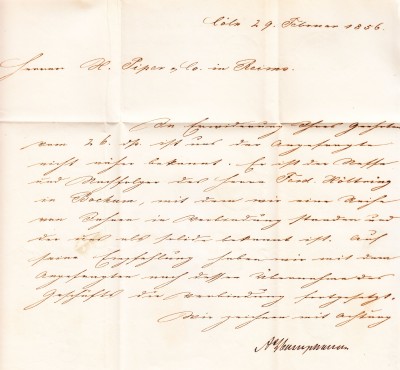 Cöln 29. Februar 1856.
Herren H. Piper & Co. in Reims.
In Erwiderung Ihres Geehrten
vom 26. ds. ist uns der Angefragte
nicht näher bekannt. Er ist der Neffe
und Nachfolger des Herrn Ferd. Höttring
in Bochum, mit dem wir eine Reihe
von Jahren in Verbindung standen und
der uns als solide bekannt ist. Auf
seine Empfehlung haben wir mit dem
Angefragten nach dessen Übernahme des
Geschäfts die Verbindung fortgesetzt.
Wir zeichnen mit Achtung